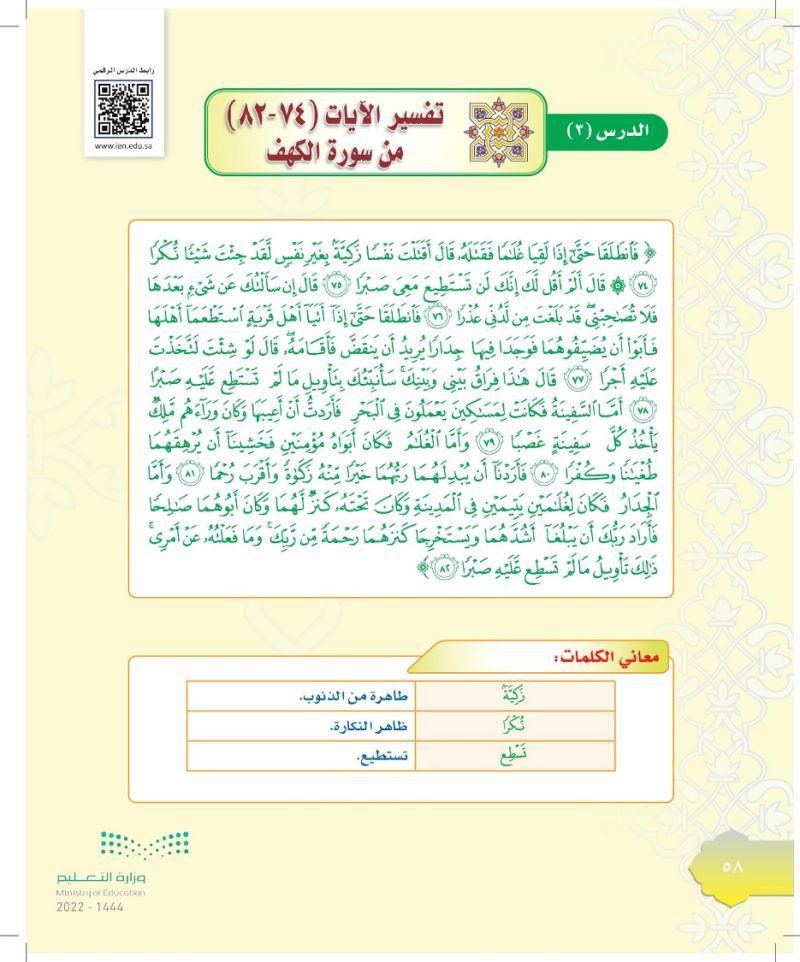 رابط الدرس الرقمي
www.ien.edu.sa
الدرس (٣)
تفسير الآيات (٧٤-٨٢)
من سورة الكهف
﴿ فَٱنطَلَقَا حَتَّىٰٓ إِذَا لَقِيَا غُلَٰمٗا فَقَتَلَهُۥ قَالَ أَقَتَلۡتَ نَفۡسٗا زَكِيَّةَۢ بِغَيۡرِ نَفۡسٖ لَّقَدۡ جِئۡتَ شَيۡـٔٗا نُّكۡرٗا
٧٤ ۞ قَالَ أَلَمۡ أَقُل لَّكَ إِنَّكَ لَن تَسۡتَطِيعَ مَعِيَ صَبۡرٗا ٧٥ قَالَ إِن سَأَلۡتُكَ عَن شَيۡءِۭ بَعۡدَهَا
فَلَا تُصَٰحِبۡنِيۖ قَدۡ بَلَغۡتَ مِن لَّدُنِّي عُذۡرٗا ٧٦ فَٱنطَلَقَا حَتَّىٰٓ إِذَآ أَتَيَآ أَهۡلَ قَرۡيَةٍ ٱسۡتَطۡعَمَآ أَهۡلَهَا
فَأَبَوۡاْ أَن يُضَيِّفُوهُمَا فَوَجَدَا فِيهَا جِدَارٗا يُرِيدُ أَن يَنقَضَّ فَأَقَامَهُۥۖ قَالَ لَوۡ شِئۡتَ لَتَّخَذۡتَ
عَلَيۡهِ أَجۡرٗا ٧٧ قَالَ هَٰذَا فِرَاقُ بَيۡنِي وَبَيۡنِكَۚ سَأُنَبِّئُكَ بِتَأۡوِيلِ مَا لَمۡ تَسۡتَطِع عَّلَيۡهِ صَبۡرًا
٧٨ أَمَّا ٱلسَّفِينَةُ فَكَانَتۡ لِمَسَٰكِينَ يَعۡمَلُونَ فِي ٱلۡبَحۡرِ فَأَرَدتُّ أَنۡ أَعِيبَهَا وَكَانَ وَرَآءَهُم مَّلِكٞ
يَأۡخُذُ كُلَّ سَفِينَةٍ غَصۡبٗا ٧٩ وَأَمَّا ٱلۡغُلَٰمُ فَكَانَ أَبَوَاهُ مُؤۡمِنَيۡنِ فَخَشِينَآ أَن يُرۡهِقَهُمَا
طُغۡيَٰنٗا وَكُفۡرٗا ٨٠ فَأَرَدۡنَآ أَن يُبۡدِلَهُمَا رَبُّهُمَا خَيۡرٗا مِّنۡهُ زَكَوٰةٗ وَأَقۡرَبَ رُحۡمٗا ٨١ وَأَمَّا
ٱلۡجِدَارُ فَكَانَ لِغُلَٰمَيۡنِ يَتِيمَيۡنِ فِي ٱلۡمَدِينَةِ وَكَانَ تَحۡتَهُۥ كَنزٞ لَّهُمَا وَكَانَ أَبُوهُمَا صَٰلِحٗا
فَأَرَادَ رَبُّكَ أَن يَبۡلُغَآ أَشُدَّهُمَا وَيَسۡتَخۡرِجَا كَنزَهُمَا رَحۡمَةٗ مِّن رَّبِّكَۚ وَمَا فَعَلۡتُهُۥ عَنۡ أَمۡرِيۚ
ذَٰلِكَ تَأۡوِيلُ مَا لَمۡ تَسۡطِع عَّلَيۡهِ صَبۡرٗا ٨٢ ﴾
معاني الكلمات:
زَكِيَّةَۢ طاهرة من الذنوب.
نُّكۡرٗا ظاهر النكارة.
تَسۡطِع تستطيع.
وزارة التعليم
Ministry of Education
2022 - 1444
٥٨